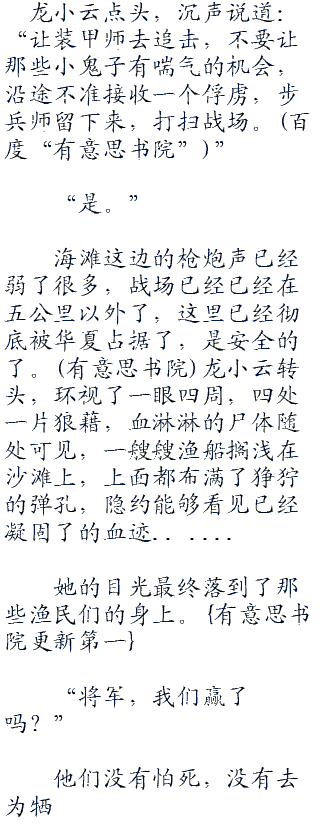 龙小云点头，沉声说道：
“让装甲师去追击，不要让
那些小鬼子有喘气的机会，
沿途不准接收一个俘虏，步
兵师留下来，打扫战场。(百
度“有意思书院”)”
“是。”
海滩这边的枪炮声已经
弱了很多，战场已经已经在
五公里以外了，这里已经彻
底被华夏占据了，是安全的
了。(有意思书院)龙小云转
头，环视了一眼四周，四处
一片狼藉，血淋淋的尸体随
处可见，一艘艘渔船搁浅在
沙滩上，上面都布满了狰狞
的弹孔，隐约能够看见已经
凝固了的血迹.......
她的目光最终落到了那
些渔民们的身上。{有意思书
院更新第一}
“将军，我们赢了
吗？”
他们没有怕死，没有去
为牺